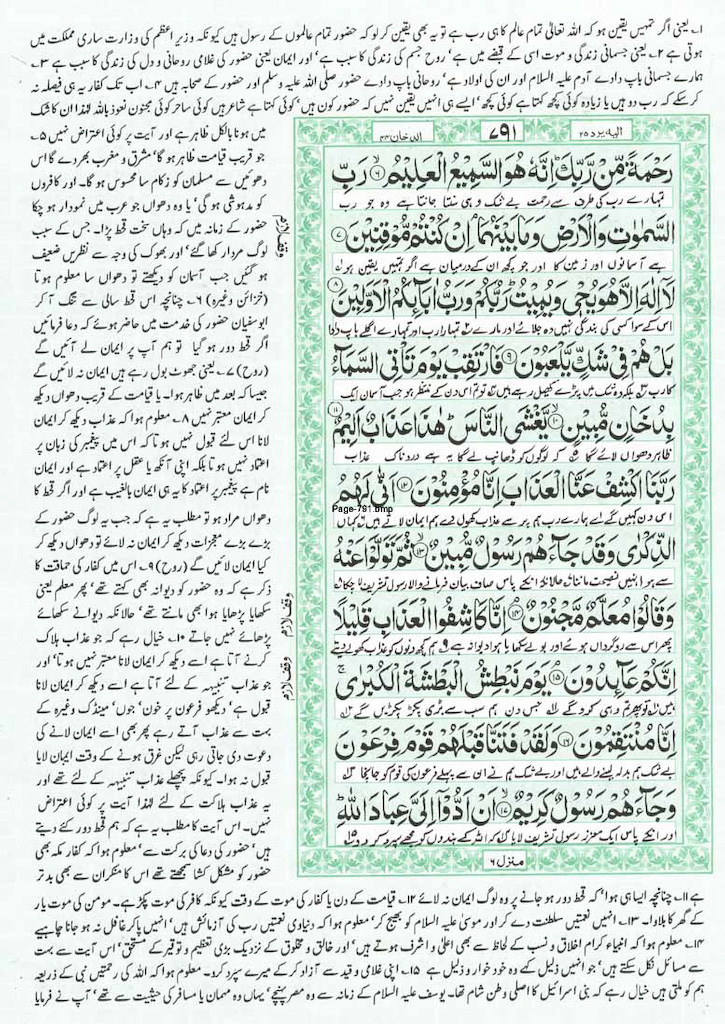 ۱۔ یعنی اگر تمہیں یقین ہو کہ اللہ تعالیٰ تمام عالم کا ہی رب ہے تو یہ بھی یقین کر لو کہ حضور تمام عالموں کے رسول ہیں کیونکہ وزیر اعظم کی وزارت ساری مملکت میں
ہوتی ہے ۲۔ یعنی جسمانی زندگی و موت اسی کے قبضے میں ہے' روح جسم کی زندگی کا سبب ہے' اور ایمان یعنی حضور کی غلامی روحانی و دل کی زندگی کا سبب ہے ۳۔
ہمارے جسمانی باپ دادے آدم علیہ السلام اور ان کی اولاد ہے' روحانی باپ دادے حضور صلی اللہ علیہ وسلم اور حضور کے صحابہ ہیں ۴۔ اب تک کفار یہ ہی فیصلہ نہ
کر سکے کہ رب دو ہیں یا زیادہ کوئی کچھ کہتا ہے کوئی کچھ' ایسے ہی انہیں یقین نہیں کہ حضور کون ہیں' کوئی کہتا ہے شاعر ہیں کوئی ساحر کوئی مجنون نعوذ باللہ لہٰذا ان کا شک
میں ہونا بالکل ظاہر ہے اور آیت پر کوئی اعتراض نہیں ۵۔
جو قریب قیامت ظاہر ہو گا' مشرق و مغرب بھر دے گا اس
دھوئیں سے مسلمان کو زکام سا محسوس ہو گا۔ اور کافروں
کو مدہوشی ہو گی' یا وہ دھواں جو عرب میں نمودار ہو چکا
حضور کے زمانہ میں کہ وہاں سخت قحط پڑا۔ جس کے سبب
لوگ مردار کھا گئے' اور بھوک کی وجہ سے نظریں ضعیف
ہو گئیں جب آسمان کو دیکھتے تو دھواں سا معلوم ہوتا
(خزائن وغیرہ) ۶۔ چنانچہ اس قحط سالی سے تنگ آ کر
ابوسفیان حضور کی خدمت میں حاضر ہوئے کہ دعا فرمائیں
اگر قحط دور ہو گیا تو ہم آپ پر ایمان لے آئیں گے
(روح) ۷۔ یعنی جھوٹ بول رہے ہیں ایمان نہ لائیں گے
جیسا کہ بعد میں ظاہر ہوا۔ یا قیامت کے قریب دھواں دیکھ
کر ایمان معتبر نہیں ۸۔ معلوم ہوا کہ عذاب دیکھ کر ایمان
لانا اس لئے قبول نہیں ہوتا کہ اس میں پیغمبر کی زبان پر
اعتماد نہیں ہوتا بلکہ اپنی آنکھ یا عقل پر اعتماد ہے اور ایمان
نام ہے پیغمبر پر اعتماد کا یہ ہی ایمان بالغیب ہے اور اگر قحط کا
دھواں مراد ہو تو مطلب یہ ہے کہ جب یہ لوگ حضور کے
بڑے بڑے معجزات دیکھ کر ایمان نہ لائے تو دھواں دیکھ کر
کیا ایمان لائیں گے (روح) ۹۔ اس میں کفار کی حماقت کا
ذکر ہے کہ وہ حضور کو دیوانہ بھی کہتے تھے' پھر معلم یعنی
سکھایا پڑھایا ہوا بھی مانتے تھے' حالانکہ دیوانے سکھائے
پڑھائے نہیں جاتے ۱۰۔ خیال رہے کہ جو عذاب ہلاک
کرنے آتا ہے اسے دیکھ کر ایمان لانا معتبر نہیں ہوتا' اور
جو عذاب تنبیہہ کے لئے آتا ہے اسے دیکھ کر ایمان لانا
قبول ہے' دیکھو فرعون پر خون' جوں' مینڈک وغیرہ کے
بہت سے عذاب آتے رہے پھر بھی اسے ایمان لانے کی
دعوت دی جاتی رہی لیکن غرق ہونے کے وقت ایمان لایا
قبول نہ ہوا۔ کیونکہ پچھلے عذاب تنبیہہ کے لئے تھے اور
یہ عذاب ہلاکت کے لئے لہٰذا آیت پر کوئی اعتراض
نہیں۔ اس آیت کا مطلب یہ ہے کہ ہم قحط دور کئے دیتے
ہیں' حضور کی دعا کی برکت سے' معلوم ہوا کہ کفار مکہ بھی
حضور کو مشکل کشا سمجھتے تھے اس کا منکر ان سے بھی بدتر
الیہ یرد ۲۵
۷۹۱
الدخان ۴۴
رَحْمَةً مِّنْ رَّبِّكَ اِنَّهٗ هُوَ السَّمِيْعُ الْعَلِيْمُ ۶ رَبِّ
تمہارے رب کی طرف سے رحمت بے شک وہی سنتا جانتا ہے وہ جو رب
السَّمٰوٰتِ وَالْاَرْضِ وَمَا بَيْنَهُمَا اِنْ كُنْتُمْ مُّوْقِنِيْنَ ۷
ہے آسمانوں اور زمین کا اور جو کچھ ان کے درمیان ہے اگر تمہیں یقین ہو
لَاۤ اِلٰهَ اِلَّا هُوَ يُحْيٖ وَيُمِيْتُ رَبُّكُمْ وَرَبُّ اٰبَآىِٕكُمُ الْاَوَّلِيْنَ ۸
اس کے سوا کسی کی بندگی نہیں وہ جلائے اور مارے تمہارا رب اور تمہارے اگلے باپ دادا
بَلْ هُمْ فِيْ شَكٍّ يَّلْعَبُوْنَ ۹ فَارْتَقِبْ يَوْمَ تَاْتِي السَّمَآءُ
کا رب بلکہ وہ شک میں پڑے کھیل رہے ہیں تو تم اس دن کے منتظر رہو جب آسمان ایک
بِدُخَانٍ مُّبِيْنٍ ۱۰ يَّغْشَى النَّاسَ هٰذَا عَذَابٌ اَلِيْمٌ ۱۱
ظاہر دھواں لائے گا کہ لوگوں کو ڈھانپ لے گا یہ ہے دردناک عذاب
رَبَّنَا اكْشِفْ عَنَّا الْعَذَابَ اِنَّا مُؤْمِنُوْنَ ۱۲ اَنّٰى لَهُمُ
Page-791.bmp
اس دن کہیں گے اے ہمارے رب ہم پر سے عذاب کھول دے ہم ایمان لاتے ہیں کہاں
الذِّكْرٰى وَقَدْ جَآءَهُمْ رَسُوْلٌ مُّبِيْنٌ ۱۳ ثُمَّ تَوَلَّوْا عَنْهُ
سے ہو انہیں نصیحت ماننا حالانکہ انکے پاس صاف بیان فرمانے والا رسول تشریف لا چکا
وَقَالُوْا مُعَلَّمٌ مَّجْنُوْنٌ ۱۴ اِنَّا كَاشِفُوا الْعَذَابِ قَلِيْلًا
پھر اس سے روگرداں ہوئے اور بولے سکھایا ہوا دیوانہ ہے ہم کچھ دنوں کو عذاب کھولے دیتے
اِنَّكُمْ عَآىِٕدُوْنَ ۱۵ يَوْمَ نَبْطِشُ الْبَطْشَةَ الْكُبْرٰى
ہیں تم پھر وہی کرو گے جس دن ہم سب سے بڑی پکڑ پکڑیں گے
اِنَّا مُنْتَقِمُوْنَ ۱۶ وَلَقَدْ فَتَنَّا قَبْلَهُمْ قَوْمَ فِرْعَوْنَ
بے شک ہم بدلہ لینے والے ہیں اور بے شک ہم نے ان سے پہلے فرعون کی قوم کو جانچا
وَجَآءَهُمْ رَسُوْلٌ كَرِيْمٌ ۱۷ اَنْ اَدُّوْۤا اِلَيَّ عِبَادَ اللّٰهِ
اور انکے پاس ایک معزز رسول تشریف لایا کہ اللہ کے بندوں کو مجھے سپرد کر دو
منزل ۶
وقف لازم
وقف لازم
وقف لازم
ہے ۱۱۔ چنانچہ ایسا ہی ہوا' کہ قحط دور ہو جانے پر وہ لوگ ایمان نہ لائے ۱۲۔ قیامت کے دن یا کفار کی موت کے وقت کیونکہ کافر کی موت پکڑ ہے۔ مومن کی موت یار
کے گھر کا بلاوا۔ ۱۳۔ انہیں نعمتیں سلطنت دے کر اور موسیٰ علیہ السلام کو بھیج کر' معلوم ہوا کہ دنیاوی نعمتیں رب کی آزمائش ہیں' انہیں پا کر غافل نہ ہو جانا چاہیے
۱۴۔ معلوم ہوا کہ انبیاء کرام اخلاق و نسب کے لحاظ سے بھی اعلیٰ و اشرف ہوتے ہیں' اور خالق و مخلوق کے نزدیک بڑی تعظیم و توقیر کے مستحق' اس آیت سے بہت
سے مسائل نکل سکتے ہیں' جو انہیں ذلیل کہے وہ خود خوار و ذلیل ہے ۱۵۔ اپنی غلامی و قید سے آزاد کر کے میرے سپرد کرو۔ معلوم ہوا کہ اللہ کی رحمتیں نبی کے ذریعہ
ہم کو ملتی ہیں خیال رہے کہ بنی اسرائیل کا اصلی وطن شام تھا۔ یوسف علیہ السلام کے زمانہ سے وہ مصر پہنچے' یہاں وہ مہمان یا مسافر کی حیثیت سے تھے' آپ نے فرمایا